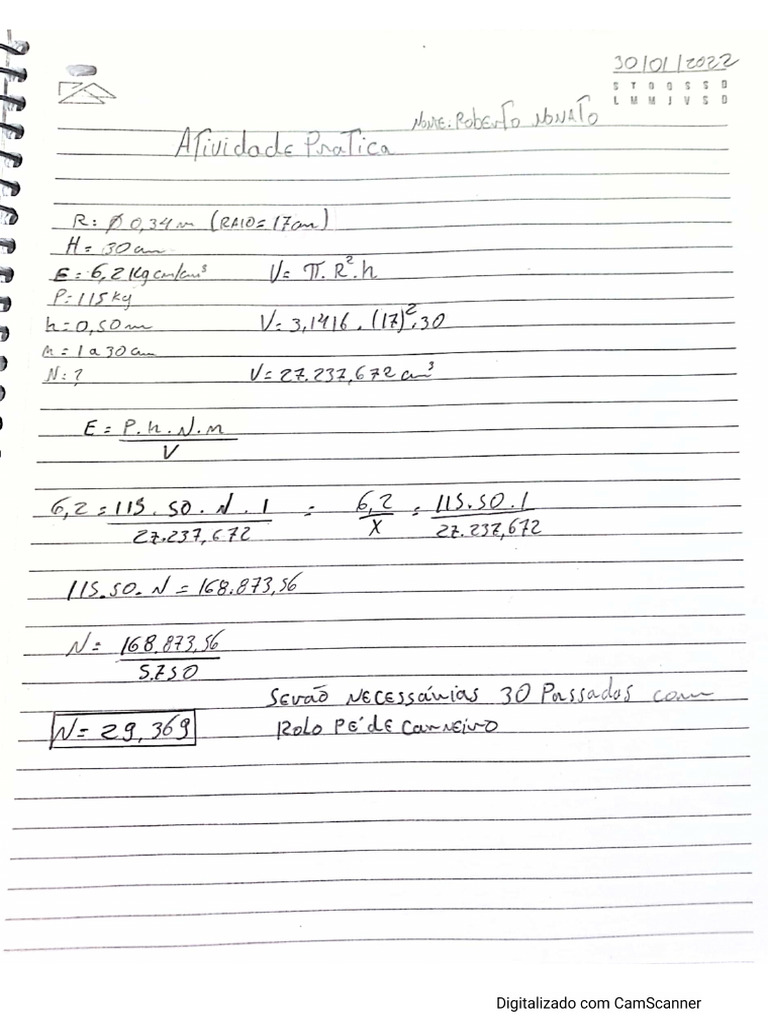 30/01/2022
S T Q Q S S D
L M M J V S D
Nome: Roberto Nonato
Atividade Pratica
R: Ø 0,34m (RAIO = 17cm)
H = 30cm
E = 6,2 Kgcm/cm³ V = π.R².h
P = 115kg
h = 0,50m V = 3,1416 . (17)².30
m = 1 a 30cm
N: ? V = 27.237,672 cm³
E = P.h.N.m
V
6,2 = 115.50.N.1 = 6,2 = 115.50.1
27.237,672 X 27.237,672
115.50.N = 168.873,56
N = 168.873,56
5.750
Serão necessárias 30 Passadas com
N = 29,369 Rolo Pé de Carneiro
Digitalizado com CamScanner